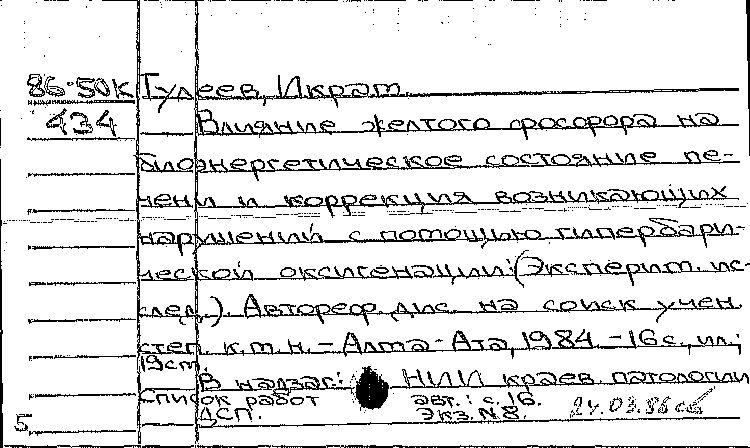 86-50К Гулеев, Икрат.
434 Влияние желтого фосфора на
биоэнергетическое состояние пе-
чени и коррекция возникающих
нарушений с помощью гипербари-
ческой оксигенации: (Эксперим. ис-
след.). Автореф. дис. на соиск учен.
степ к.м.н. - Алма-Ата, 1984. - 16 с., ил.;
19 см.
В надзаг.: НИИ краев. патологии
Список работ авт.: с. 16.
ДСП. Экз. №8. 24.03.86
5